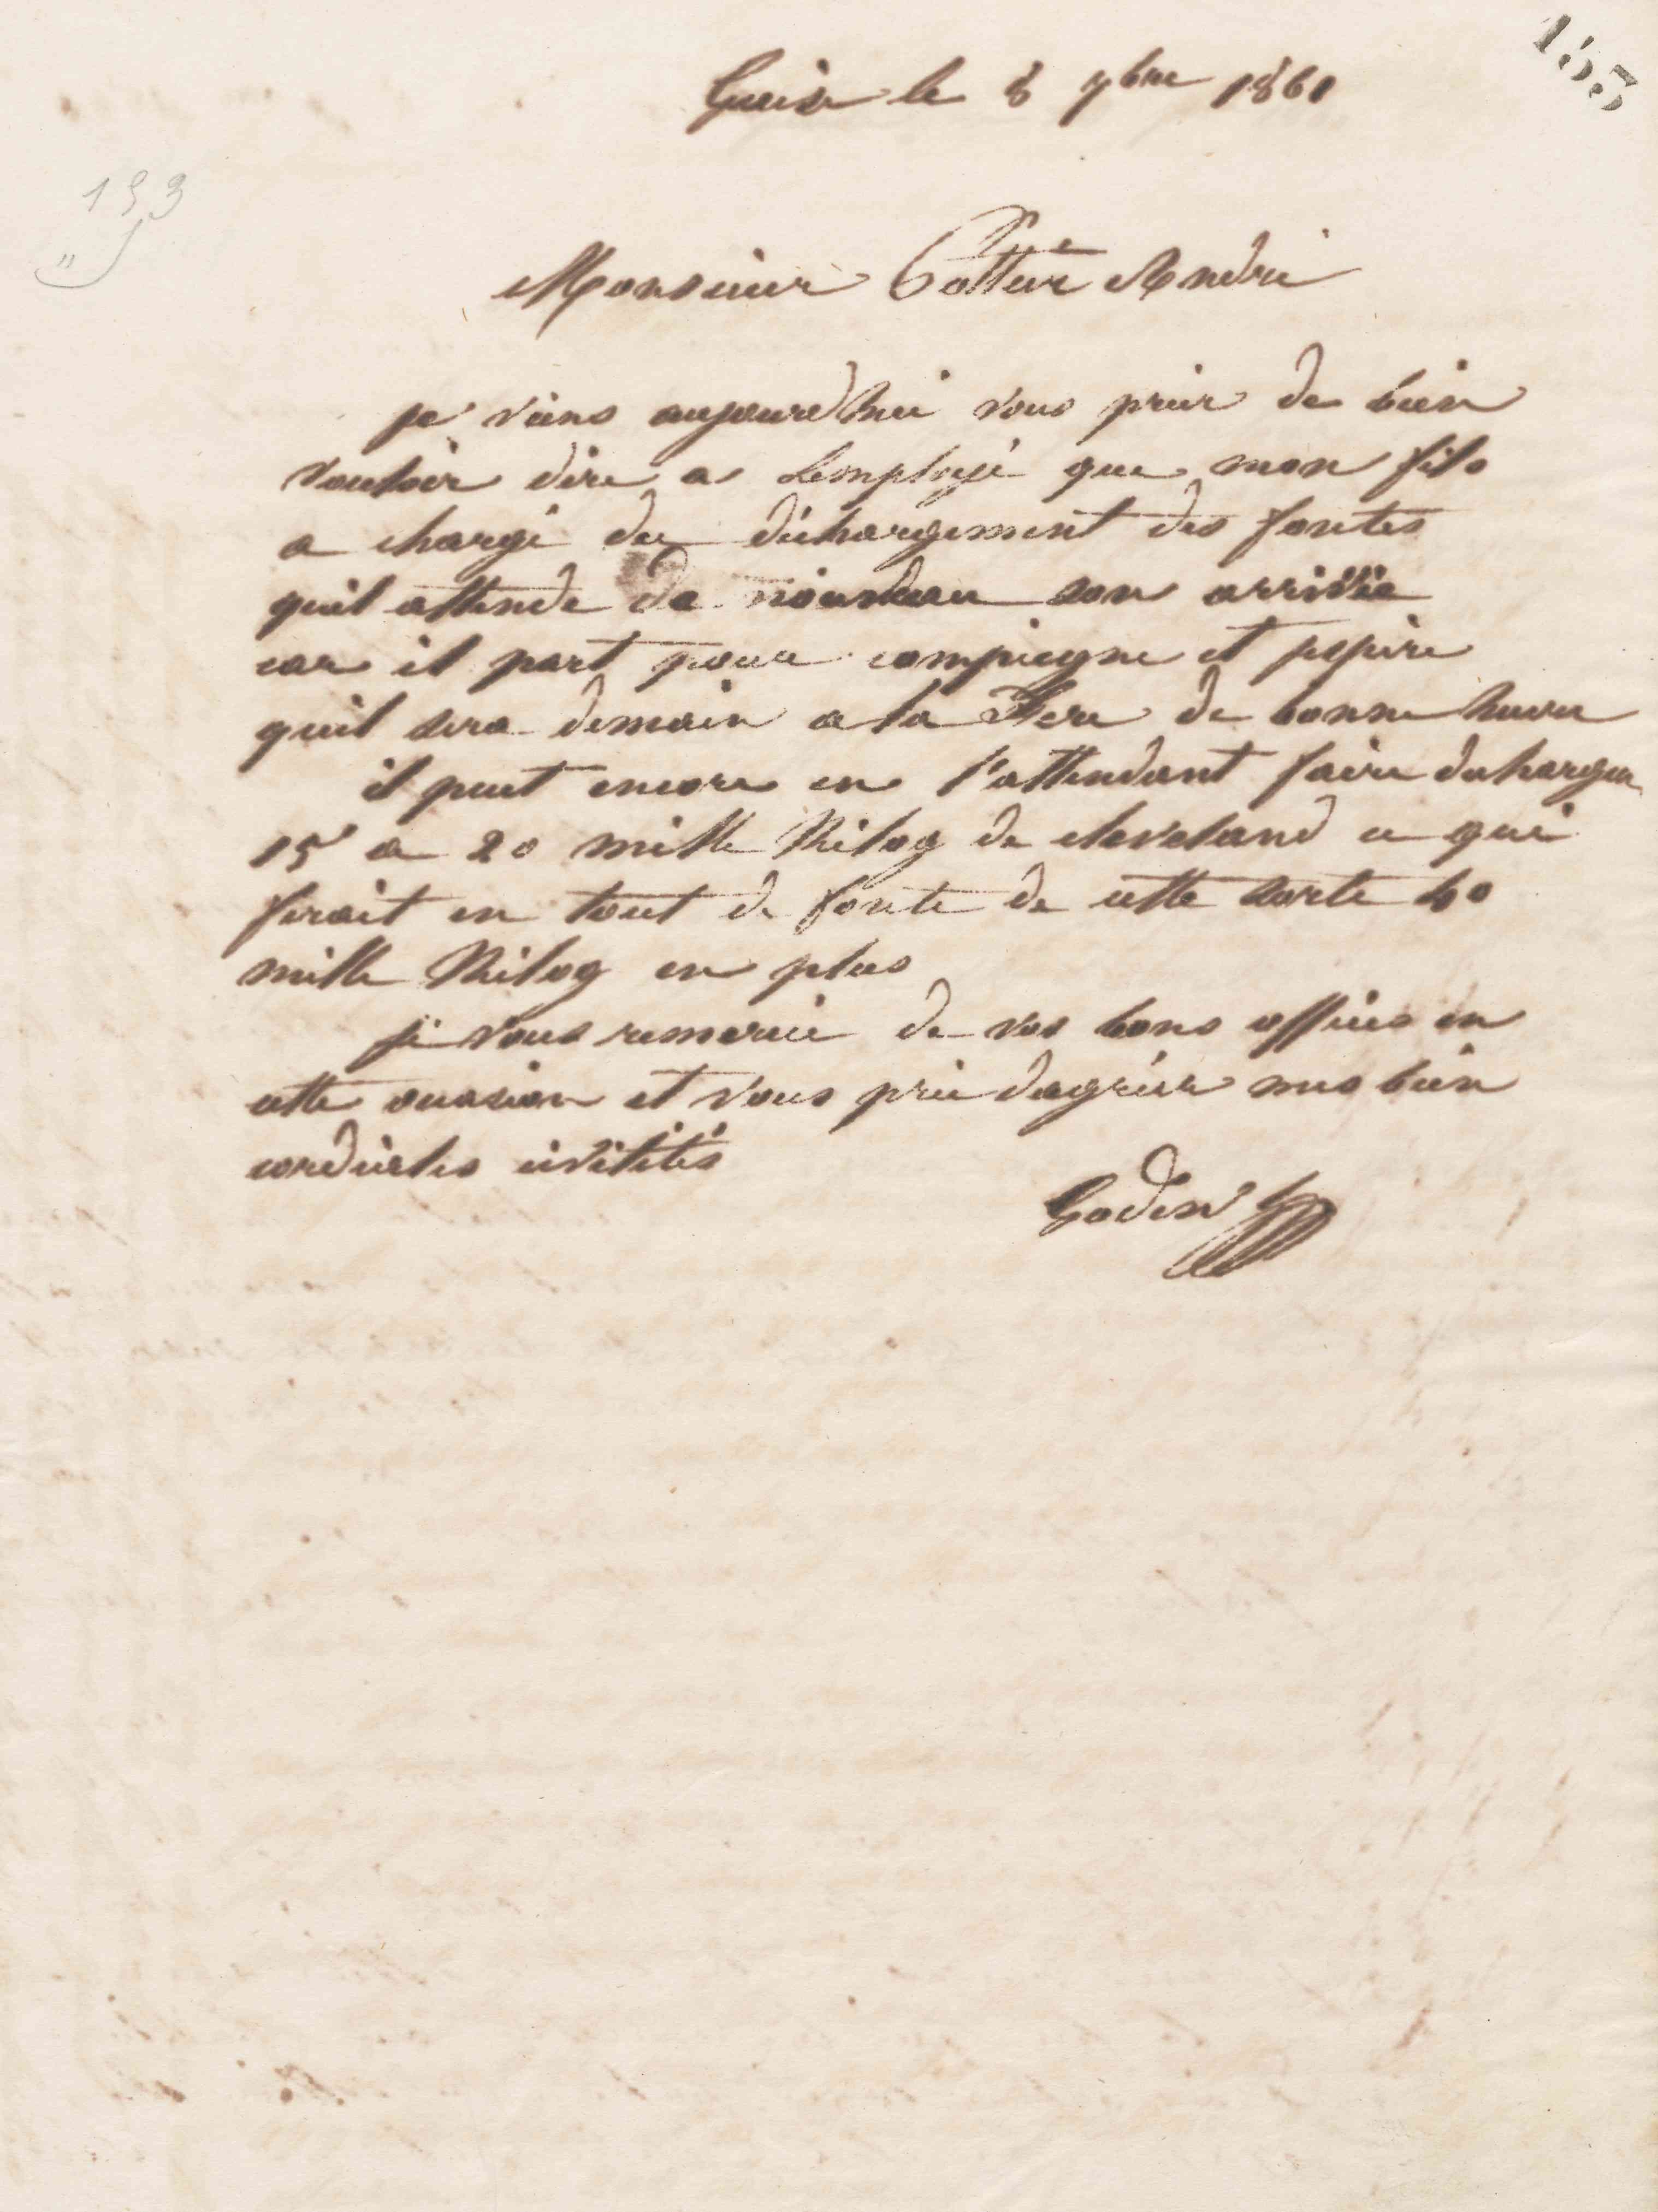 153
Guise le 8 7bre 1861
153
Monsieur André
je viens aujourdhui vous prier de bien
vouloir dire a Lemployé que mon fils
a chargé du déchargement des fontes
quil attende de nouveau son arrivée
car il part pour compiegne et jespère
quil sera demain a la Fere de bonne heure
il peut encore en l'attendant faire decharger
15 a 20 mille Kilog de cleveland ce qui
ferait en tout de fonte de cette sorte 40
mille Kilog en plus
je vous remercie de vos bons offices en
cette occasion et vous prie dagréer mes bien
cordiales civilités
Godin